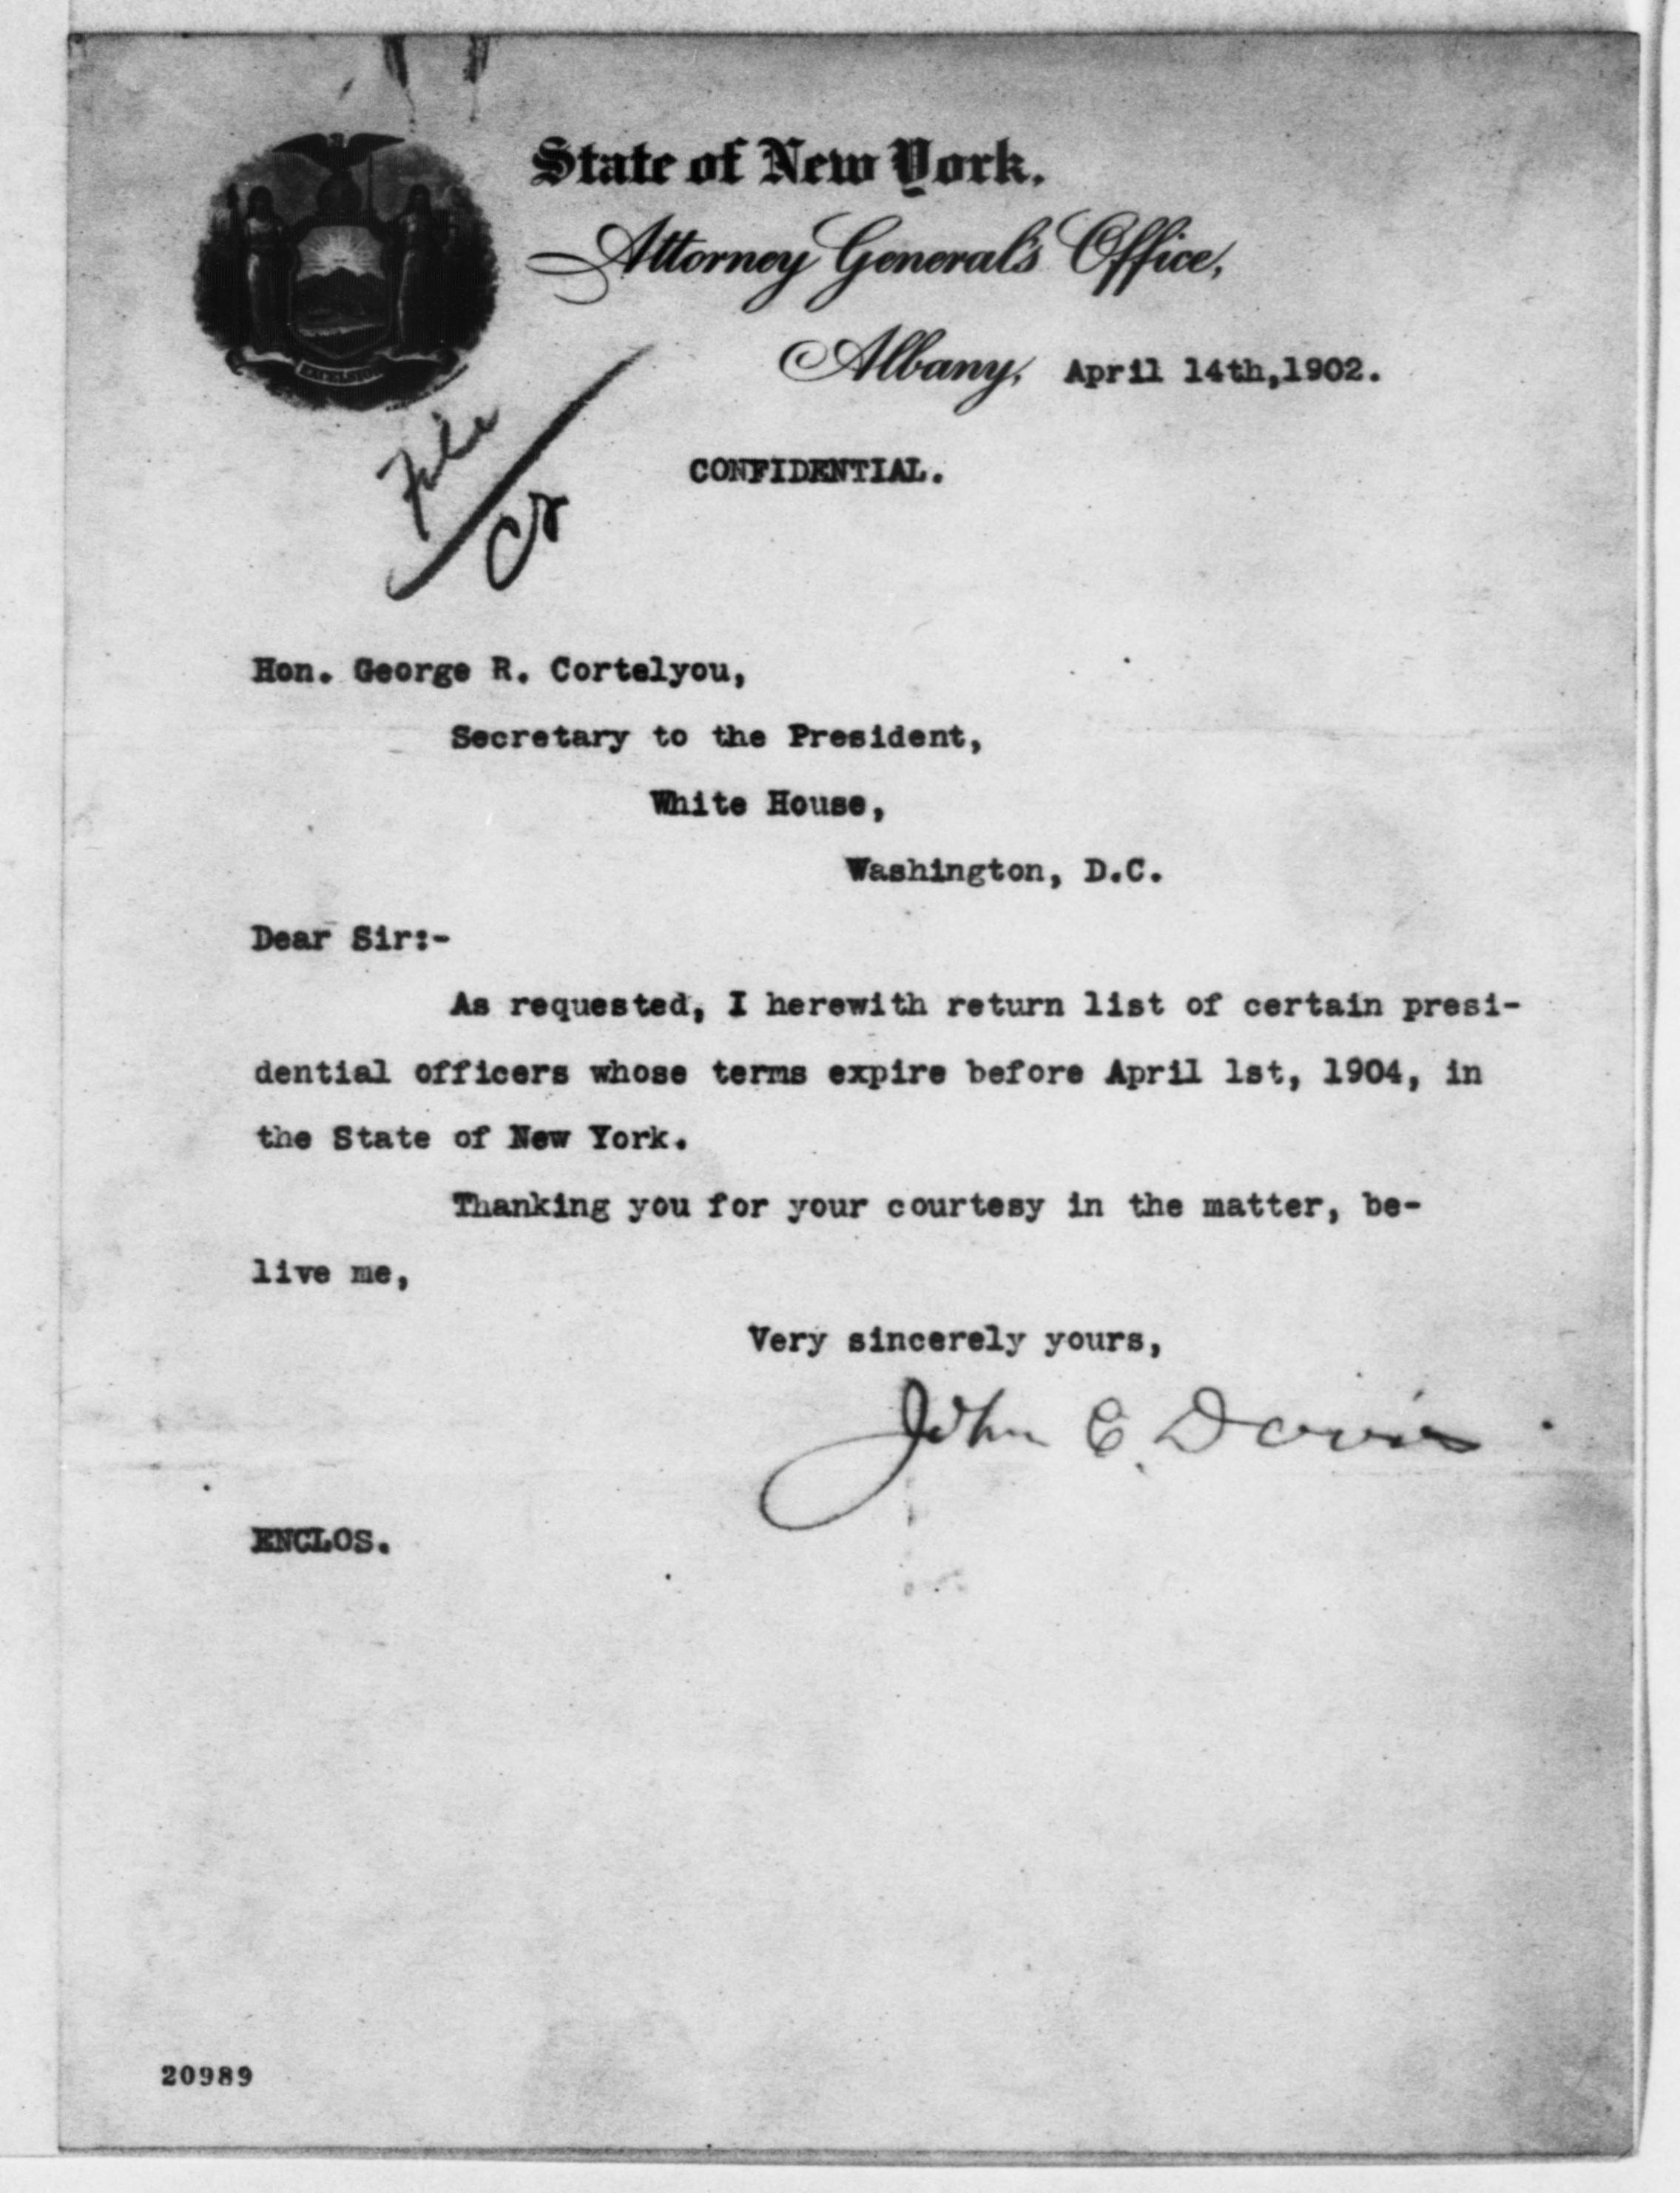 State of New York.
Attorney General's Office,
Albany, April 14th,1902.
EXCELSIOR
File
CONFIDENTIAL.
Hon. George R. Cortelyou,
Secretary to the President,
White House,
Washington, D.C.
Dear Sir:-
As requested, I herewith return list of certain presi-
dential officers whose terms expire before April 1st, 1904, in
the State of New York.
Thanking you for your courtesy in the matter, be-
live me,
Very sincerely yours,
John E. Davis
ENCLOS.
20989